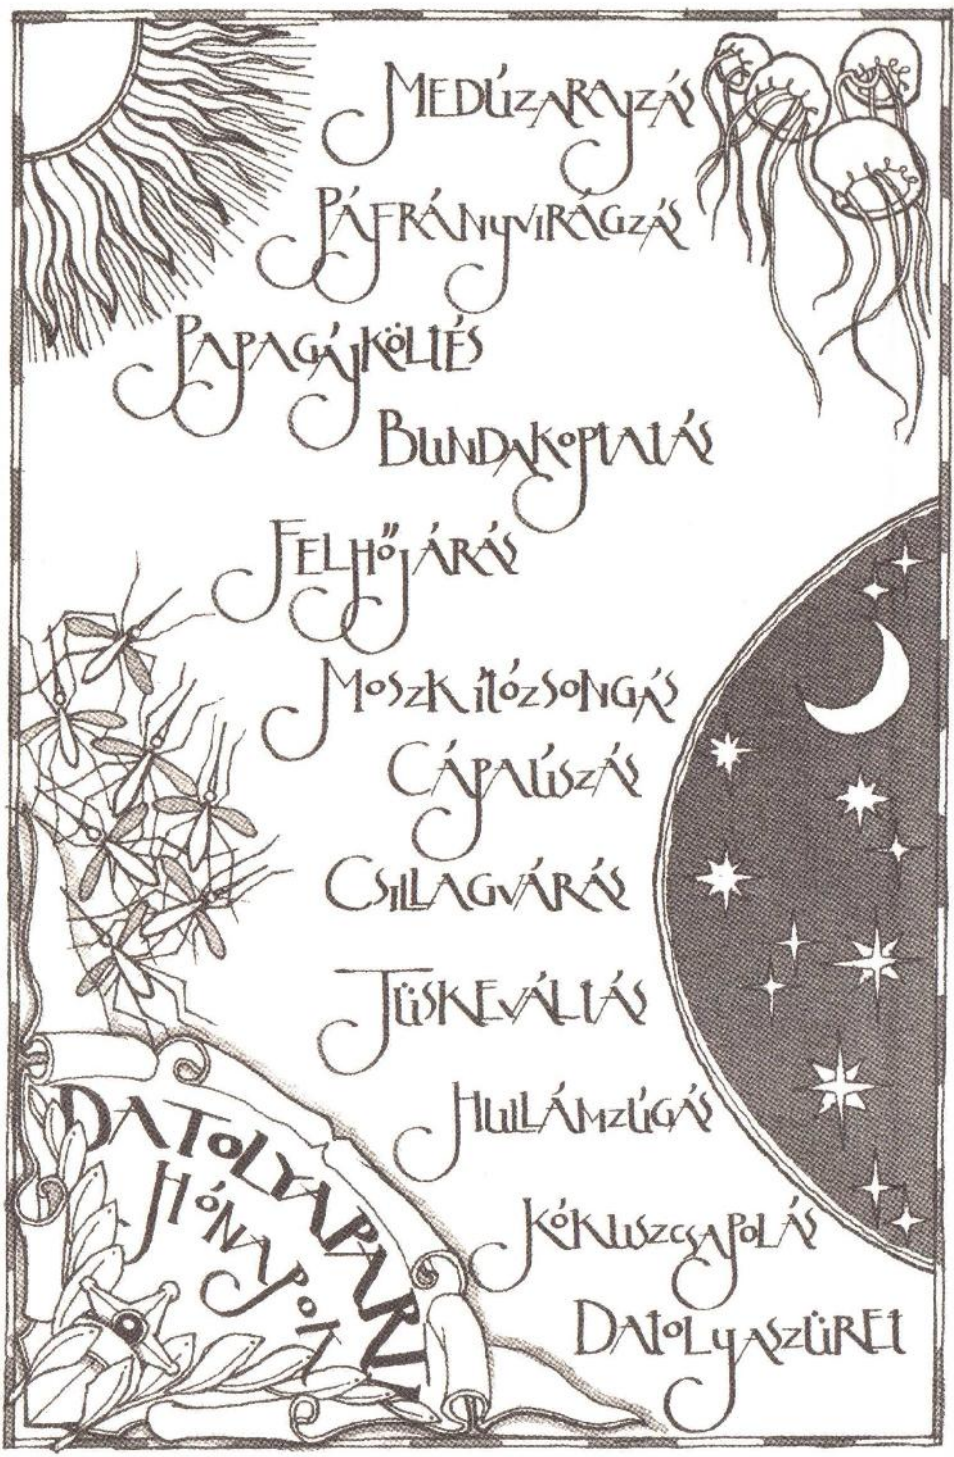 MEDÚZARAJZÁS
PÁFRÁNYVIRÁGZÁS
PAPAGÁJKÖLTÉS
BUNDAKOPTATÁS
FELHŐJÁRÁS
MOSZKÍTÓZSONGÁS
CÁPAÚSZÁS
CSILLAGVÁRÁS
TÜSKEVÁLTÁS
HULLÁMZÚGÁS
KÓKUSZCSAPOLÁS
DATOLYASZÜRET
DATOLYAPARTI
HÓNAPOK